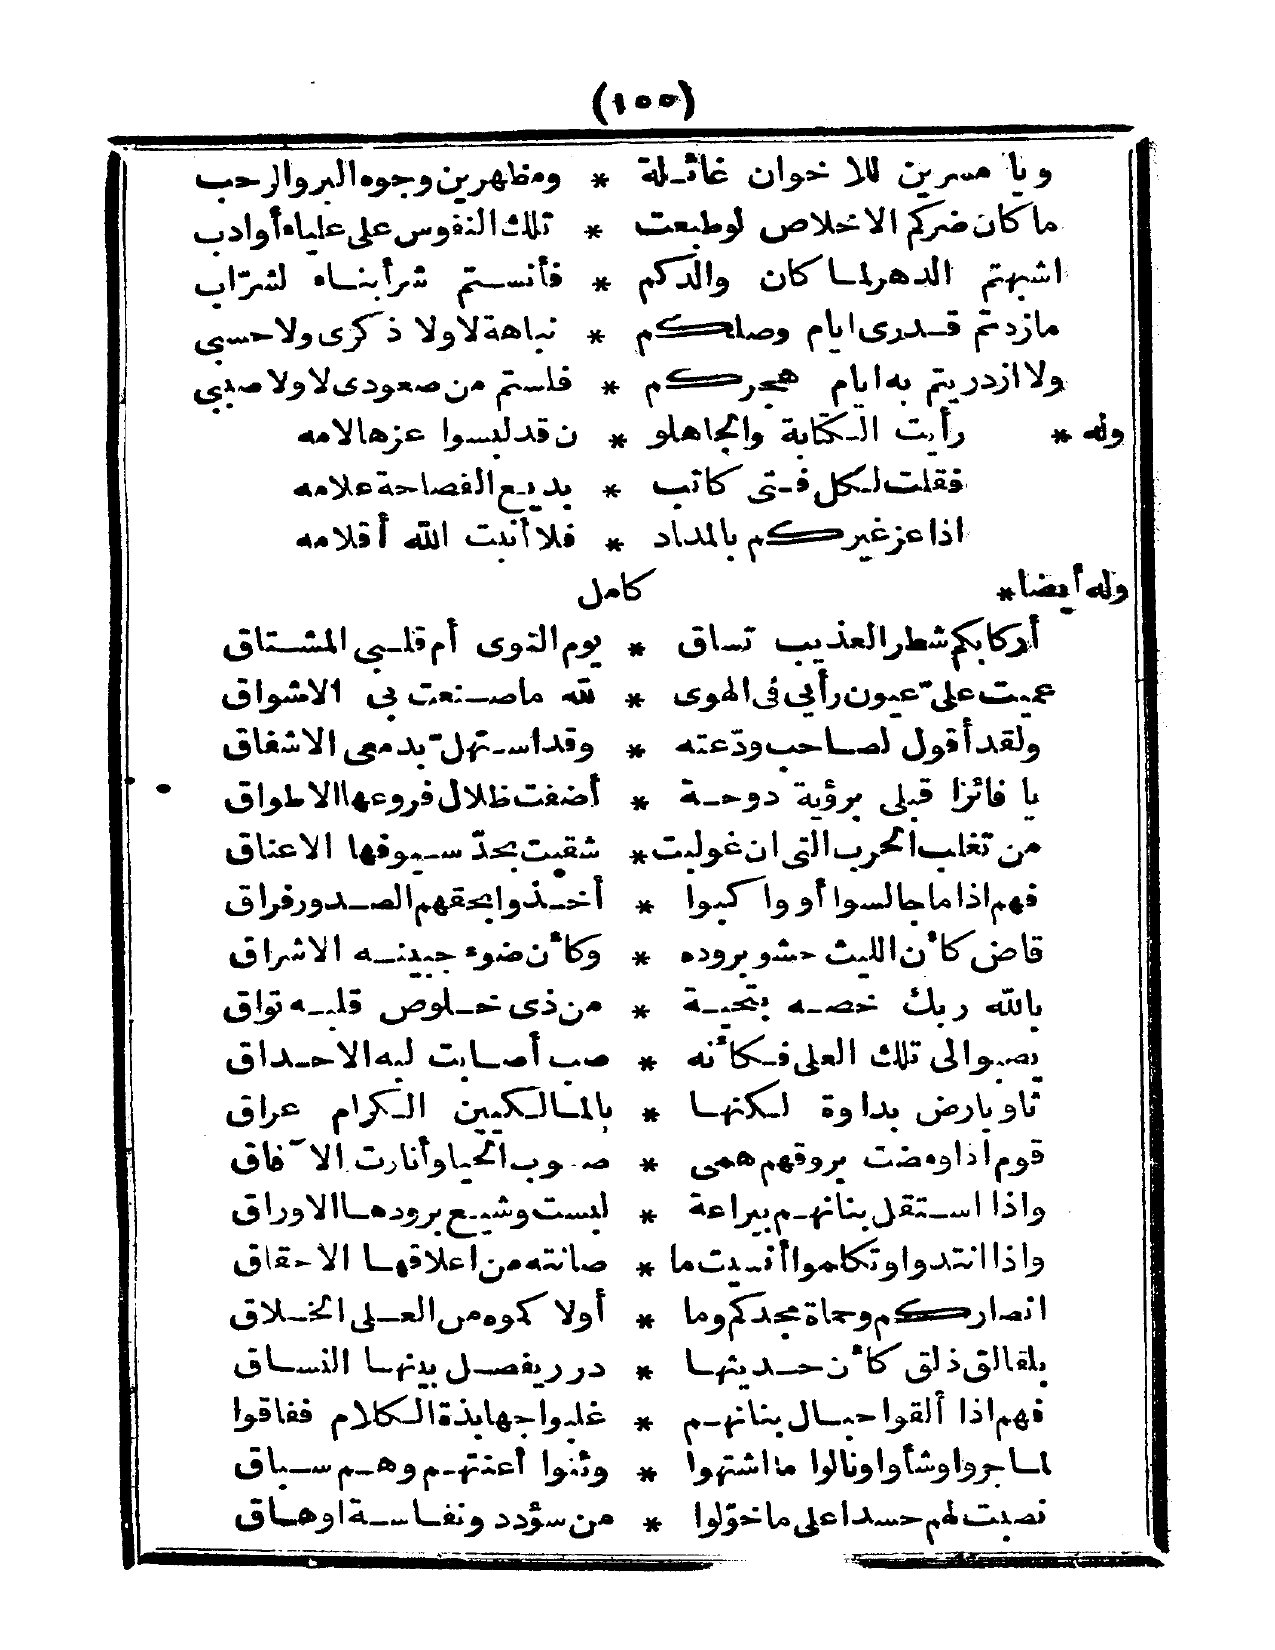 (١٠٠)
ويا مسرين للاخوان غائلة * ومظهرين وجوه البر والرحب
ما كان ضركم الاخلاص لو طبعت * تلك النفوس على علياء أو ادب
اشبهتم الدهر لما كان والدكم * فأنستم شر أبناء لشر اب
ما زدتم قدرى ايام وصلكم * نباهة لا ولا ذكرى ولا حسبي
ولا ازدريتم به ايام هجركم * فلستم من صعودى لا ولا صببي
وله * رأيت الكتابة والجاهلو * ن قد لبسوا عزها لامه
فقلت لكل فتى كاتب * بديع الفصاحة علامه
اذا عز غيركم بالمداد * فلا أنبت الله أقلامه
وله أيضا * كامل
أركابكم شطر العذيب تساق * يوم النوى أم قلبي المشتاق
عميت علىّ عيون رأيي في الهوى * لله ما صنعت بي الاشواق
ولقد أقول لصاحب ودّعته * وقد استهلّ بدمعى الاشفاق
يا فائزا قبلى برؤية دوحة * أضفت ظلال فروعها الاطواق
من تغلب الحرب التى ان غولبت * شقيت بحدّ سيوفها الاعناق
فهم اذا ما جالسوا أو واكبوا * أخذوا بحقهم الصدور فراق
قاض كأن الليث حشو بروده * وكأن ضوء جبينه الاشراق
بالله ربك خصه بتحية * من ذى خلوص قلبه تواق
يصبو الى تلك العلى فكأنه * صب أصابت لبه الاحداق
ثاو بارض بداوة لكنها * بالمالكيين الكرام عراق
قوم اذا ومضت بروقهم همى * صوب الحيا وأنارت الآفاق
واذا استقل بنانهم بيراعة * لبست وشيع برودها الاوراق
واذا انتدوا وتكلموا أنسيت ما * صانته من اعلاقها الاحقاق
انصاركم وحماة مجدكم وما * أولاكموه من العلى الخلاق
بلقالق ذلق كأن حديثها * درر يفصل بينها النساق
فهم اذا ألقوا حبال بنانهم * غلبوا جهابذة الكلام ففاقوا
لما جروا وشأوا ونالوا ما اشتهوا * وثنوا أعنتهم وهم سباق
نصبت لهم حسدا على ما خوّلوا * من سؤدد ونفاسة اوهاق